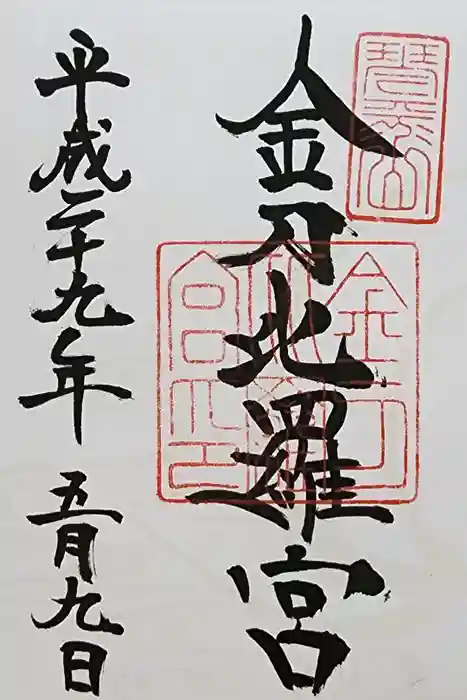 琴平山
金刀比羅宮
金刀比羅宮之印
平成二十九年 五月九日